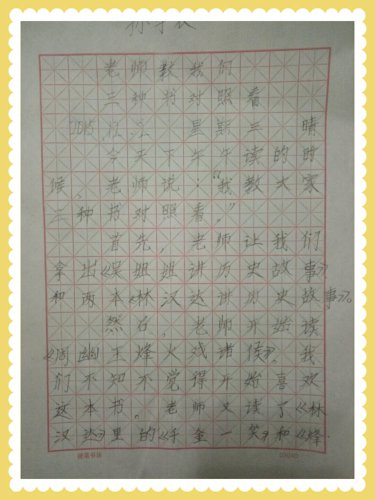 老师教我们
三种书对照看
2015.12.2 星期三 晴
今天下午午读的时
候，老师说："我教大家
三种书对照看。"
首先，老师让我们
拿出《吴姐姐讲历史故事》
和两本《林汉达讲历史故事》。
然后，老师开始读
《周幽王烽火戏诸侯》，我
们不知不觉得开始喜欢
这本书。老师又读了《林
汉达》里的《千金一笑》和《烽